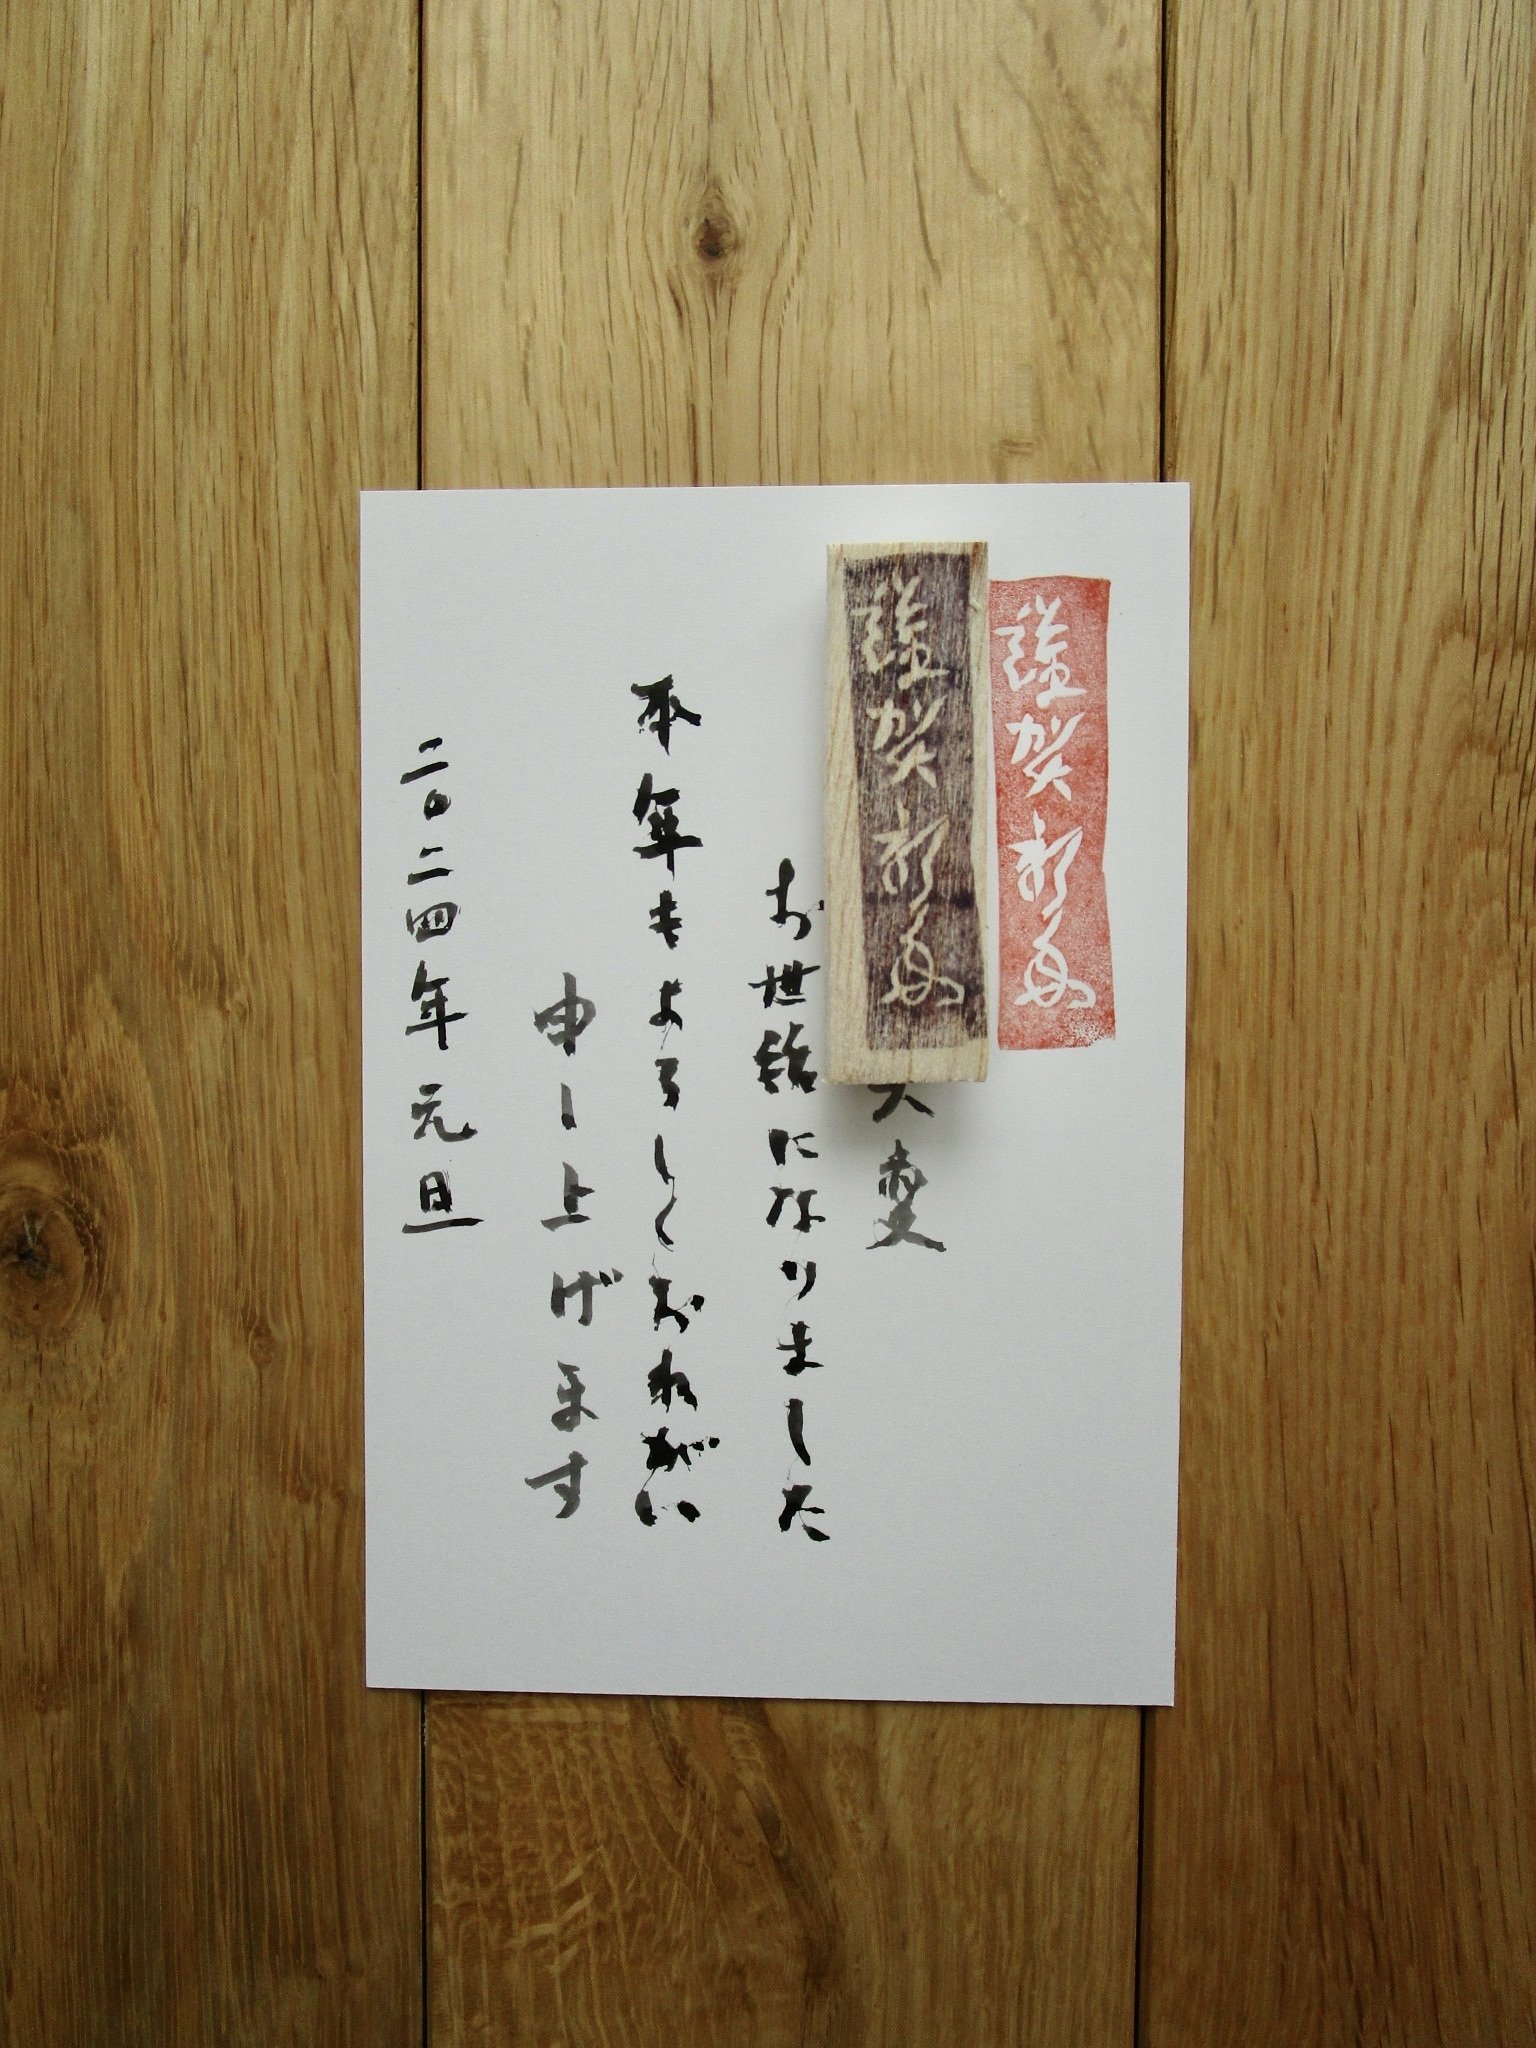 謹賀新年
謹賀新年
大変
お世話になりました
本年もよろしくおねがい
申し上げます
二〇二四年元旦